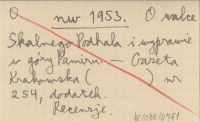 O nw 1953. O walce
Skalnego Podhala i wyprawie
w góry Pamiru. — Gazeta
Krakowska ( ) nr
254, dodatek.
Recenzje.